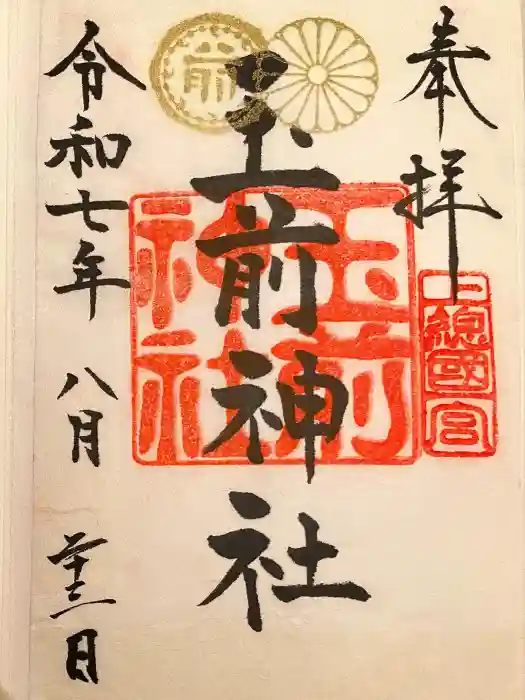 奉拝
上總國一宮
前
玉前神社
玉前神社
令和七年 八月 廿三日